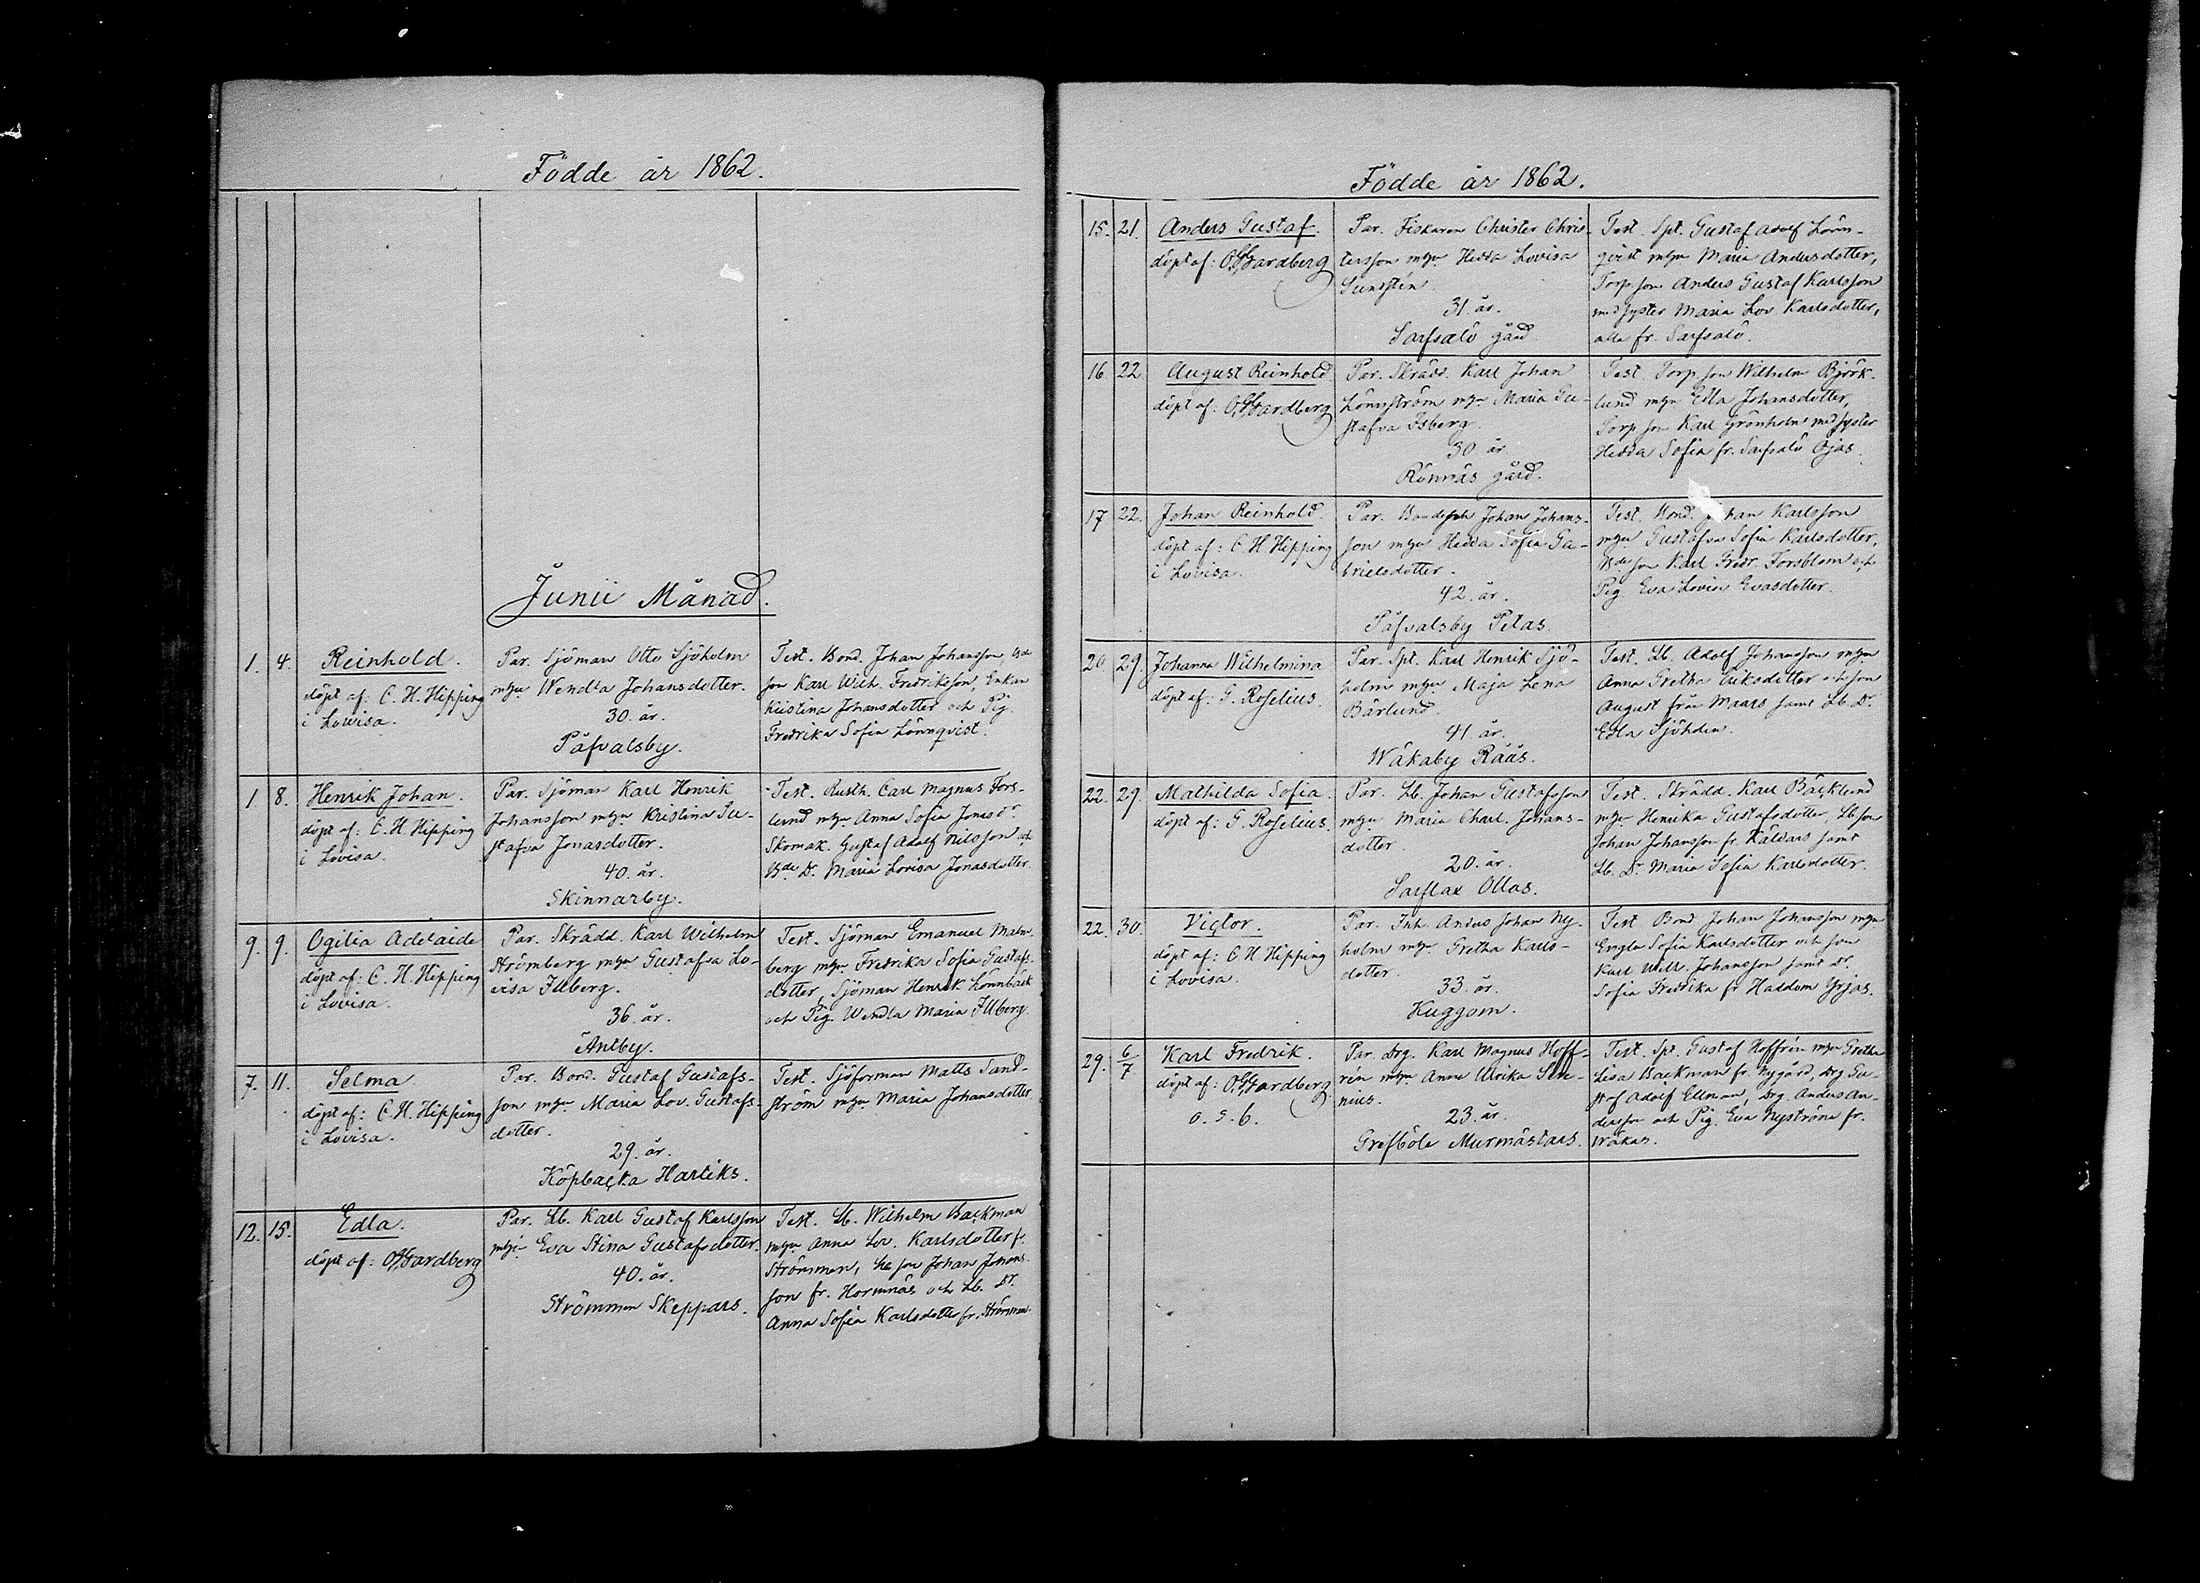 Födde år 1862.
Junii Månad.
1. 4. Reinhold.
döpt af: C. H. Hipping
i Lovisa.
Par. Sjöman Otto Sjöholm
m hu Wendla Johansdotter.
30. år.
Påfvalsby.
Test. Bond. Johan Johansson, Bde
son Karl Wilh. Fredriksson, Enkan
Kristina Johansdotter och Pig.
Fredrika Sofia Lönnqvist.
1. 8. Henrik Johan.
döpt af: C. H. Hipping
i Lovisa.
Par. Sjöman Karl Henrik
Johansson m hu Kristina Gu-
stafva Jonasdotter.
40. år.
Skinnarby.
Test. Rusth. Carl Magnus Fors-
lund m hu Anna Sofia Jonasdr
Skomak. Gustaf Adolf Nilsson och
Bde Dr Maria Lovisa Jonasdotter
9. 9. Ogilia Adelaide
döpt af: C. H. Hipping
i Lovisa.
Par. Skrädd. Karl Wilhelm
Strömberg m hu Gustafva Lo-
visa Illberg.
36. år.
Antby.
Test. Sjöman Emanuel Malm-
berg m hu Fredrika Sofia Gustafs-
dotter, Sjöman Henrik Lönnbäck
och Pig. Wendla Maria Illberg.
7. 11. Selma
döpt af: C. H. Hipping
i Lovisa.
Par. Bond. Gustaf Gustafs-
son m hu Maria Lov. Gustafs-
dotter.
29. år.
Köpbacka Harliks.
Test. Sjöforman Matts Sand-
ström m hu Maria Johansdotter
12. 15. Edla.
döpt af: OGardberg
Par. Lb. Karl Gustaf Karlsson
m hu Eva Stina Gustafsdotter.
40. år.
Strömmen Skeppars.
Test. Lb. Wilhelm Backman
m hu Anna Lov. Karlsdotter fr.
Strömmen, Lb son Johan Simons-
son fr. Hormnäs och Lb. Dr.
Anna Sofia Karlsdotter fr. Strömmen
Födde år 1862.
15. 21. Anders Gustaf.
döpt af: OGardberg
Par. Fiskaren Christer Chris-
tersson m hu Hedda Lovisa
Sundsten
31. år.
Sarfsalö gård.
Test. Spt. Gustaf Adolf Lönn-
qvist m hu Maria Andersdotter,
Torp son Anders Gustaf Karlsson
med syster Maria Lov Karlsdotter,
alla fr. Sarfsalö.
16. 22 August Reinhold
döpt af: OGardberg
Par. Skrädd. Karl Johan
Lönnström m hu Maria Gu-
stafva Isberg.
30. år
Rönnäs gård.
Test. Torp son Wilhelm Björk-
lund m hu Edla Johansdotter,
Torp son Karl Grönholm med syster
Hedda Sofia fr. Sarfsalö Bjas.
17 22. Johan Reinhold.
döpt af: C. H Hipping
i Lovisa.
Par. Bonden Johan Johans-
son m hu Hedda Sofia Ga-
brielsdotter.
42. år.
Påfvalsby Petas.
Test. Bond. Johan Karlsson
m hu Gustafva Sofia Karlsdotter,
Bde son Karl Fredr. Forsblom och
Pig. Eva Lovisa Evasdotter.
20 29. Johanna Wilhelmina
döpt af: G. Roselius.
Par. Spt. Karl Henrik Sjö-
holm m hu Maja Lena
Bärlund.
41 år.
Wåkaby Rääs.
Test. Lb. Adolf Johansson m hu
Anna Gretha Eriksdotter och son
August från Maars samt Lb. Dr.
Edla Sjöholm.
22. 29. Mathilda Sofia.
döpt af: G. Roselius.
Par. Lb. Johan Gustafsson
m hu Maria Charl. Johans-
dotter
20. år.
Sarflax Ollas.
Test. Skrädd. Karl Bäcklund
m hu Henrika Gustafsdotter, Lb son
Johan Johansson fr. Käldars samt
Lb. Dr Maria Sofia Karlsdotter.
22. 30. Victor.
döpt af: C H Hipping
i Lovisa.
Par. Inh. Anders Johan Ny-
holm m hu Gretha Karls-
dotter.
33. år.
Kuggom.
Test Bond Johan Johansson m hu
Engla Sofia Karlsdotter och son
Karl Wilh. Johansson samt Dr.
Sofia Fredrika fr Haddom Grjas.
29. 6/7 Karl Fredrik.
döpt af: OGardberg
o. s. 6.
Par. Drg. Karl Magnus Hoff-
rén m hu Anna Ulrika Se-
nius.
23. år.
Grefsböle Murmästars.
Test. Spt. Gustaf Hoffrén m hu Gretha
Lisa Backman fr. Nygård, Drg Gu-
staf Adolf Ellman, Drg. Anders An-
dersson och Pig. Eva Nyström fr.
Wåkas.